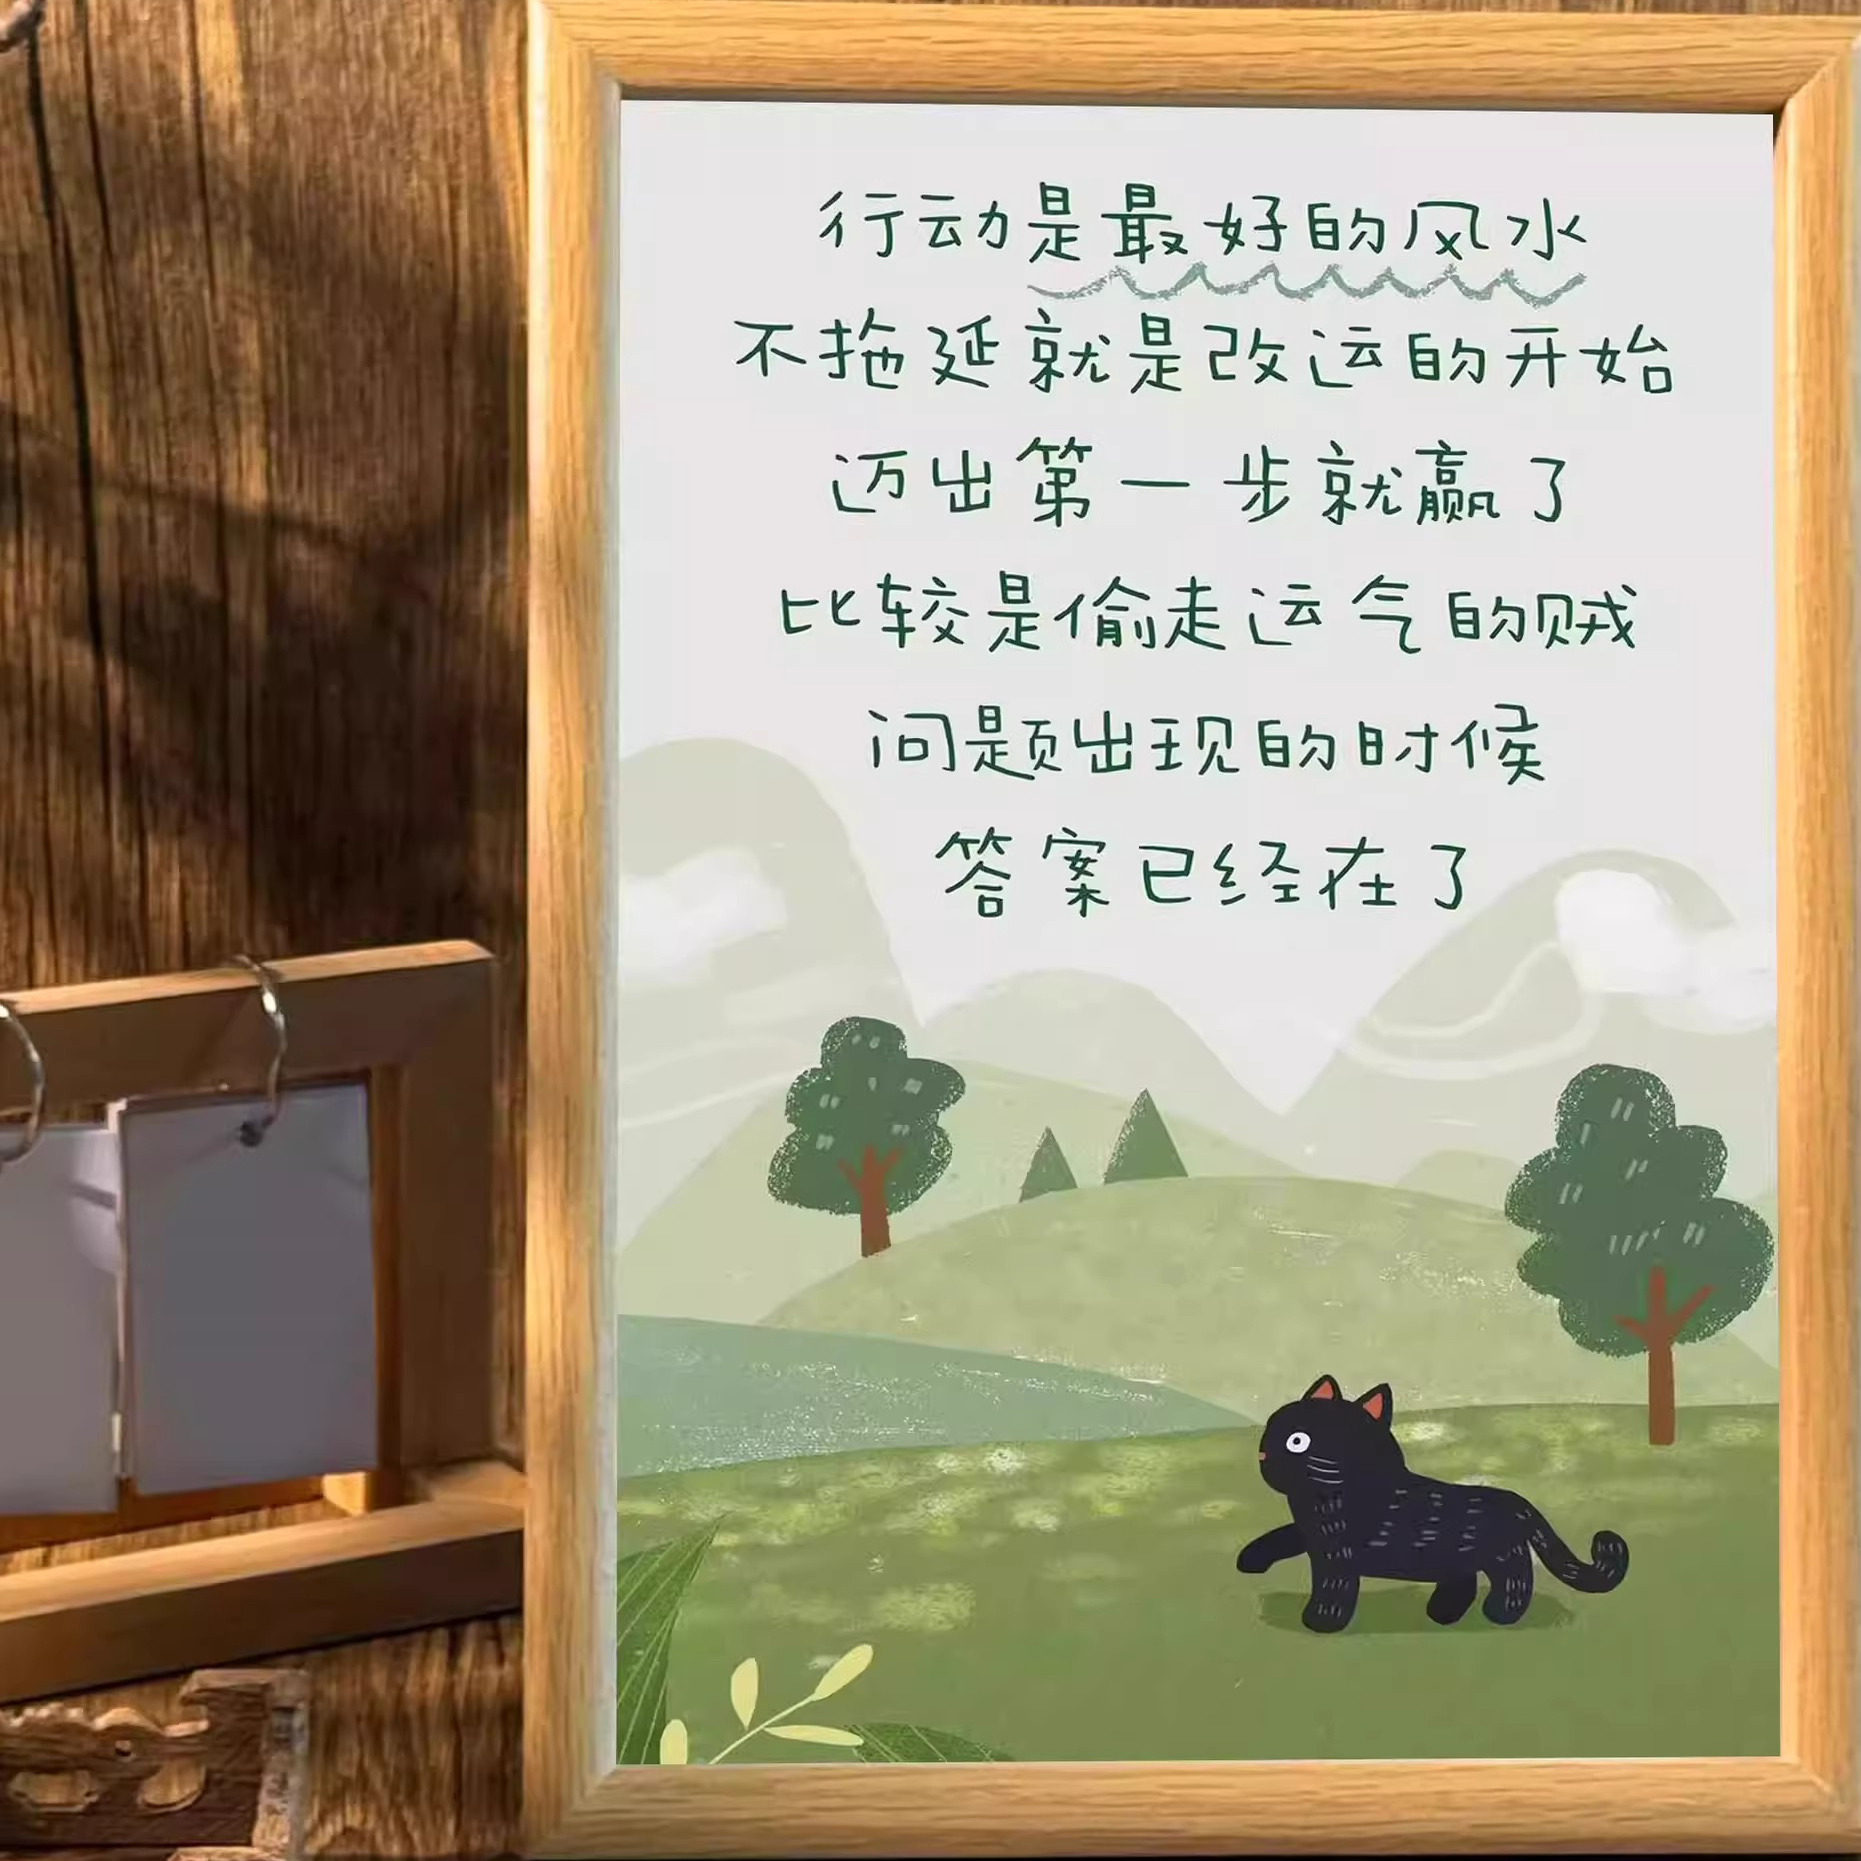 行动是最好的风水
不拖延就是改运的开始
迈出第一步就赢了
比较是偷走运气的贼
问题出现的时候
答案已经在了